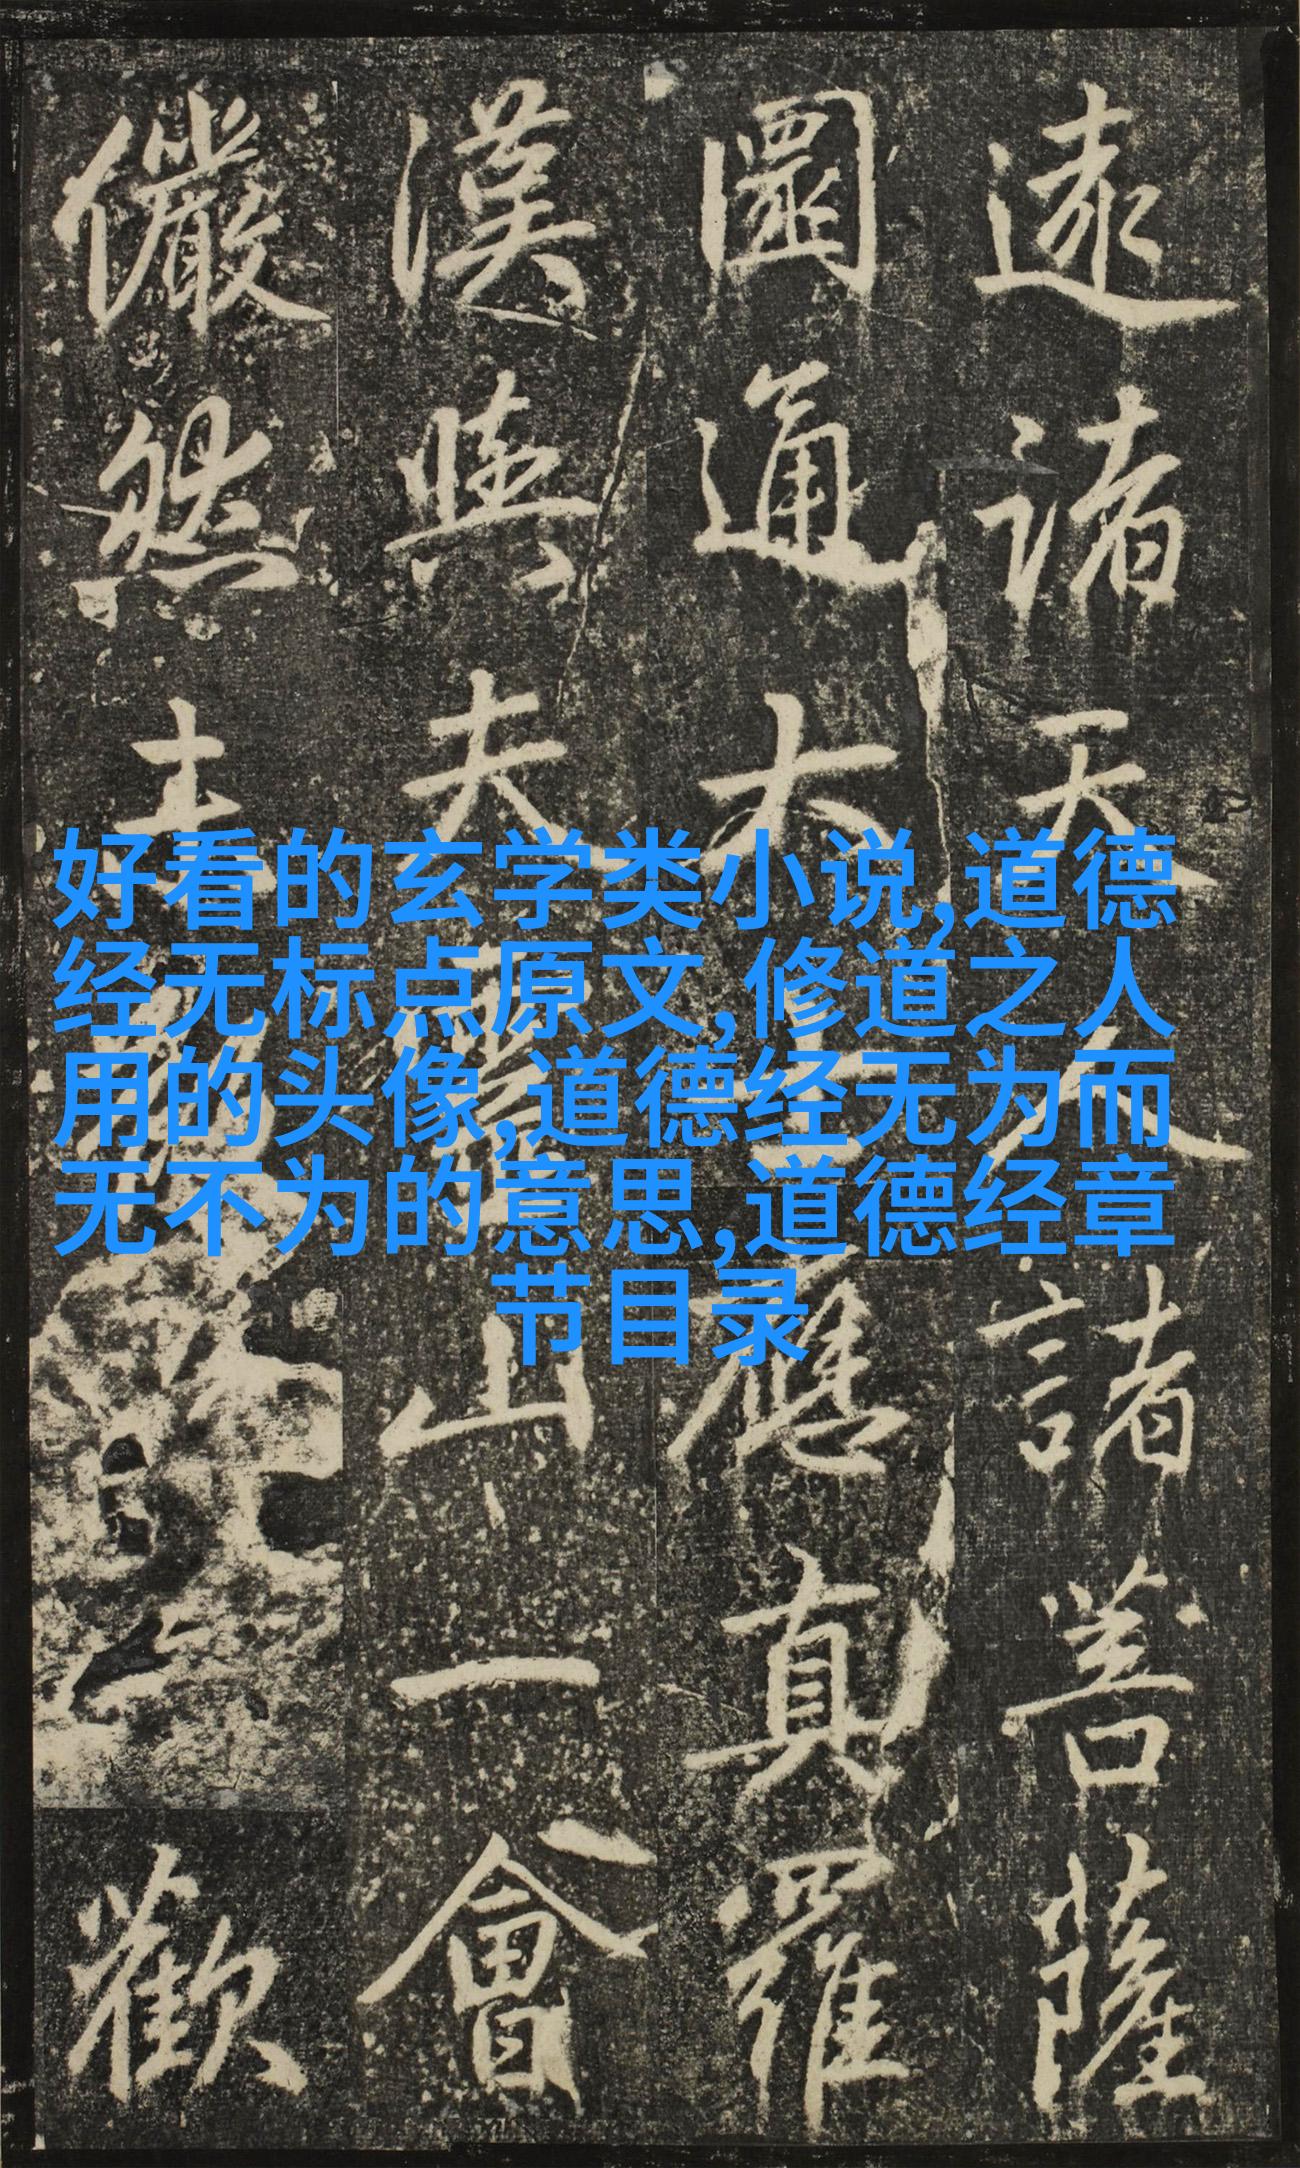 遠諸天人諸菩薩
圜通大士應真羅
漢與夫靈山一會
儼然 歡
好看的玄学类小说,道德
经无标点原文,修道之人
用的头像,道德经无为而
无不为的意思,道德经章
节目录